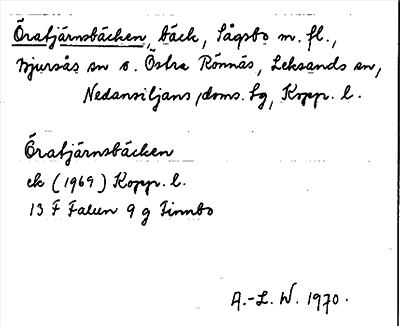 Öratjärnsbäcken, bäck, Sågsbo m. fl.,
Bjursås sn o. Östra Rönnäs, Leksands sn,
Nedansiljans doms. Lg, Kopp. l.
Öratjärnsbäcken
ek (1969) Kopp. l.
13 F Falun 9 g Finnbo
A.-L. W. 1970.